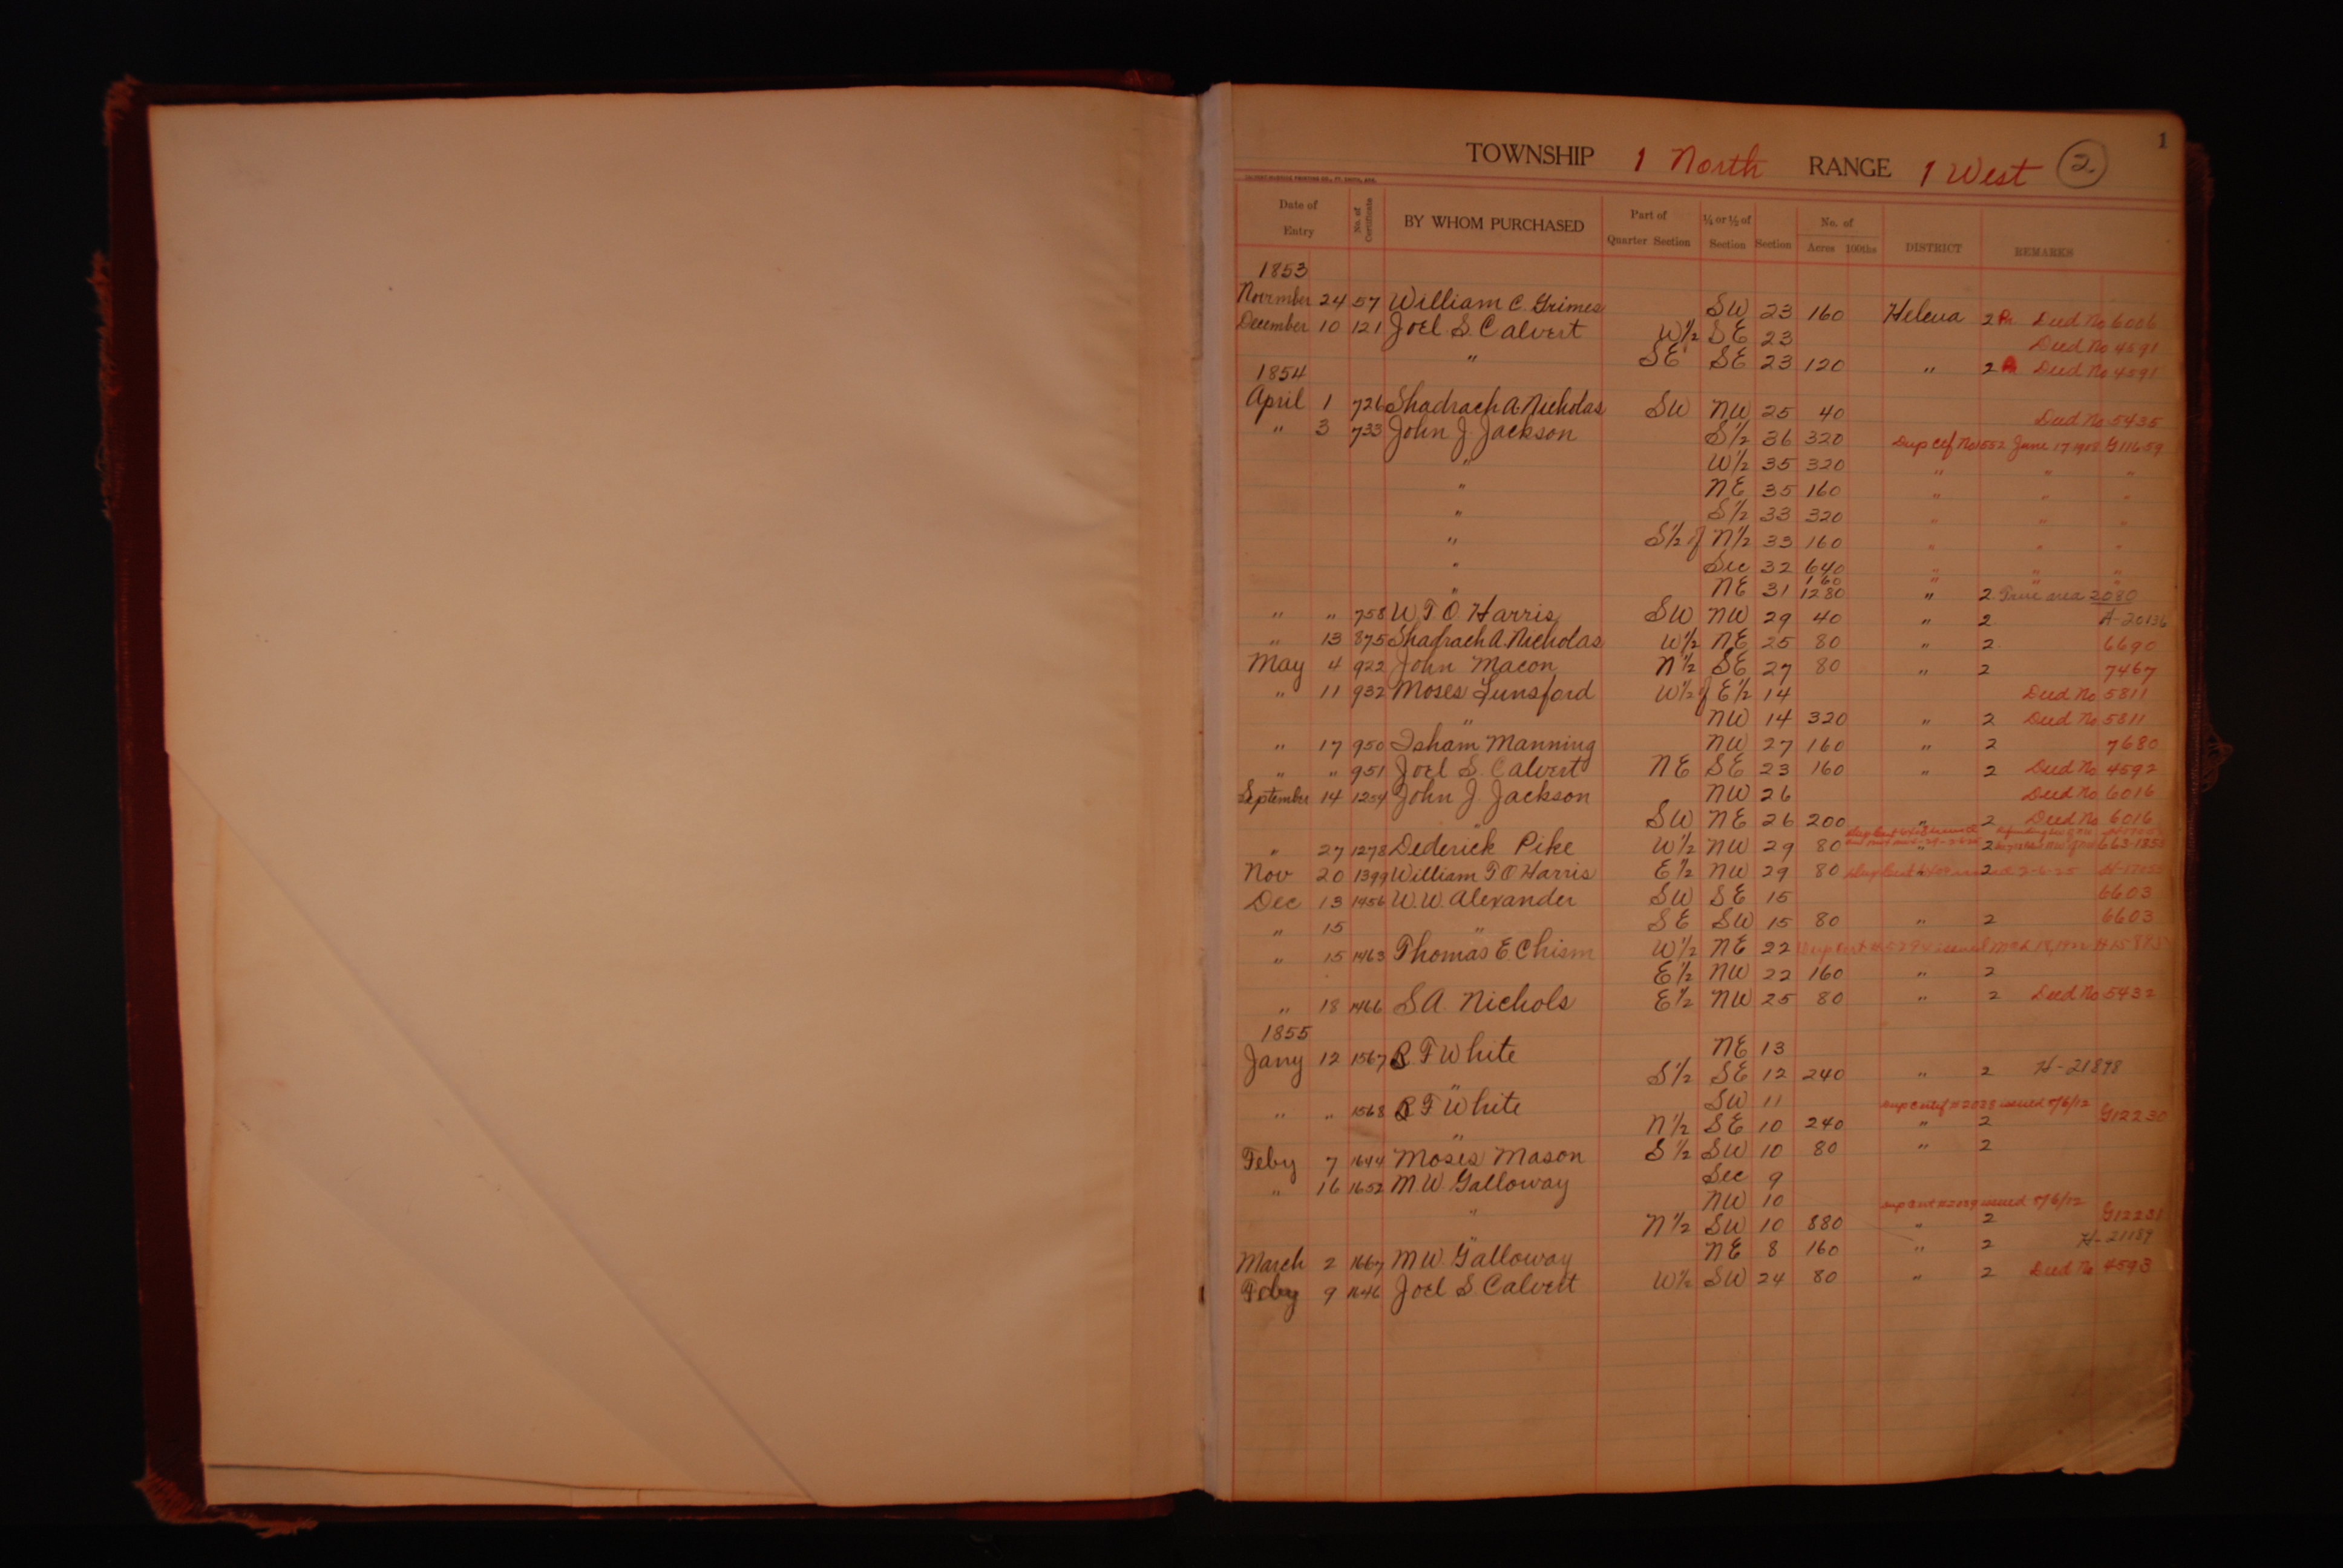 1
TOWNSHIP 1 North RANGE 1 West 2.
Date of Entry No. of Certificate BY WHOM PURCHASED Part of Quarter Section ¼ or ½ of Section Section No. of Acres 100ths DISTRICT REMARKS
1853
November 24 57 William C. Grimes SW 23 160 Helena 2 Deed No 6006
December 10 121 Joel S. Calvert W½ SE 23 Deed No 4591
" SE SE 23 120 " 2 Deed No 4591
1854
April 1 726 Shadrach A. Nicholas SW NW 25 40 Deed No 5435
" 3 733 John J. Jackson S½ 36 320 Dup Cef No 552 June 17 1908 G11659
" W½ 35 320 " " "
" NE 35 160 " " "
" S½ 33 320 " " "
" S½ of N½ 33 160 " " "
" Sec 32 640 " " "
" NE 31 160 " " "
1280 " 2 True area 2080
" " 758 W. T. O. Harris SW NW 29 40 " 2 A-20136
" 13 875 Shadrach A. Nicholas W½ NE 25 80 " 2 6690
May 4 922 John Macon N½ SE 27 80 " 2 7467
" 11 932 Moses Lunsford W½ of E½ 14 Deed No 5811
" NW 14 320 " 2 Deed No 5811
" 17 950 Isham Manning NW 27 160 " 2 7680
" " 951 Joel S. Calvert NE SE 23 160 " 2 Deed No 4592
September 14 1254 John J. Jackson NW 26 Deed No 6016
" SW NE 26 200 " 2 Deed No 6016
" 27 1278 Dederick Pike W½ NW 29 80 " 2
Nov 20 1399 William T O Harris E½ NW 29 80 " 2
Dec 13 1456 W. W. Alexander SW SE 15 6603
" 15 " SE SW 15 80 " 2 6603
" 15 1463 Thomas E Chism W½ NE 22 issued Mch 18, 1922
E½ NW 22 160 " 2
" 18 1466 S. A. Nichols E½ NW 25 80 " 2 Deed No 5432
1855
Jany 12 1567 R F White NE 13
" S½ SE 12 240 " 2 H-21898
" " 1568 R F White SW 11 Dup Certif # 2028 issued 8/6/12 G12230
" N½ SE 10 240 " 2
Feby 7 1644 Moses Mason S½ SW 10 80 " 2
" 16 1652 M. W. Galloway Sec 9
" NW 10 Dup Cert # 2029 issued 8/6/12 G12231
" N½ SW 10 880 " 2
March 2 1667 M W. Galloway NE 8 160 " 2 H-21189
Feby 9 1646 Joel S. Calvert W½ SW 24 80 " 2 Deed No 4593